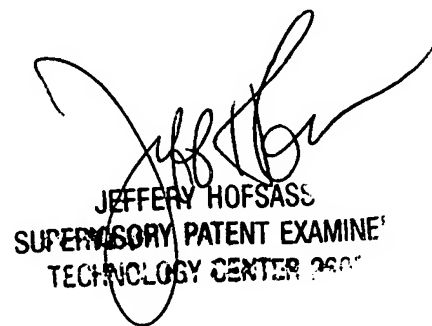 JEFFERY HOFSASS
SUPERVISORY PATENT EXAMINE
TECHNOLOGY CENTER